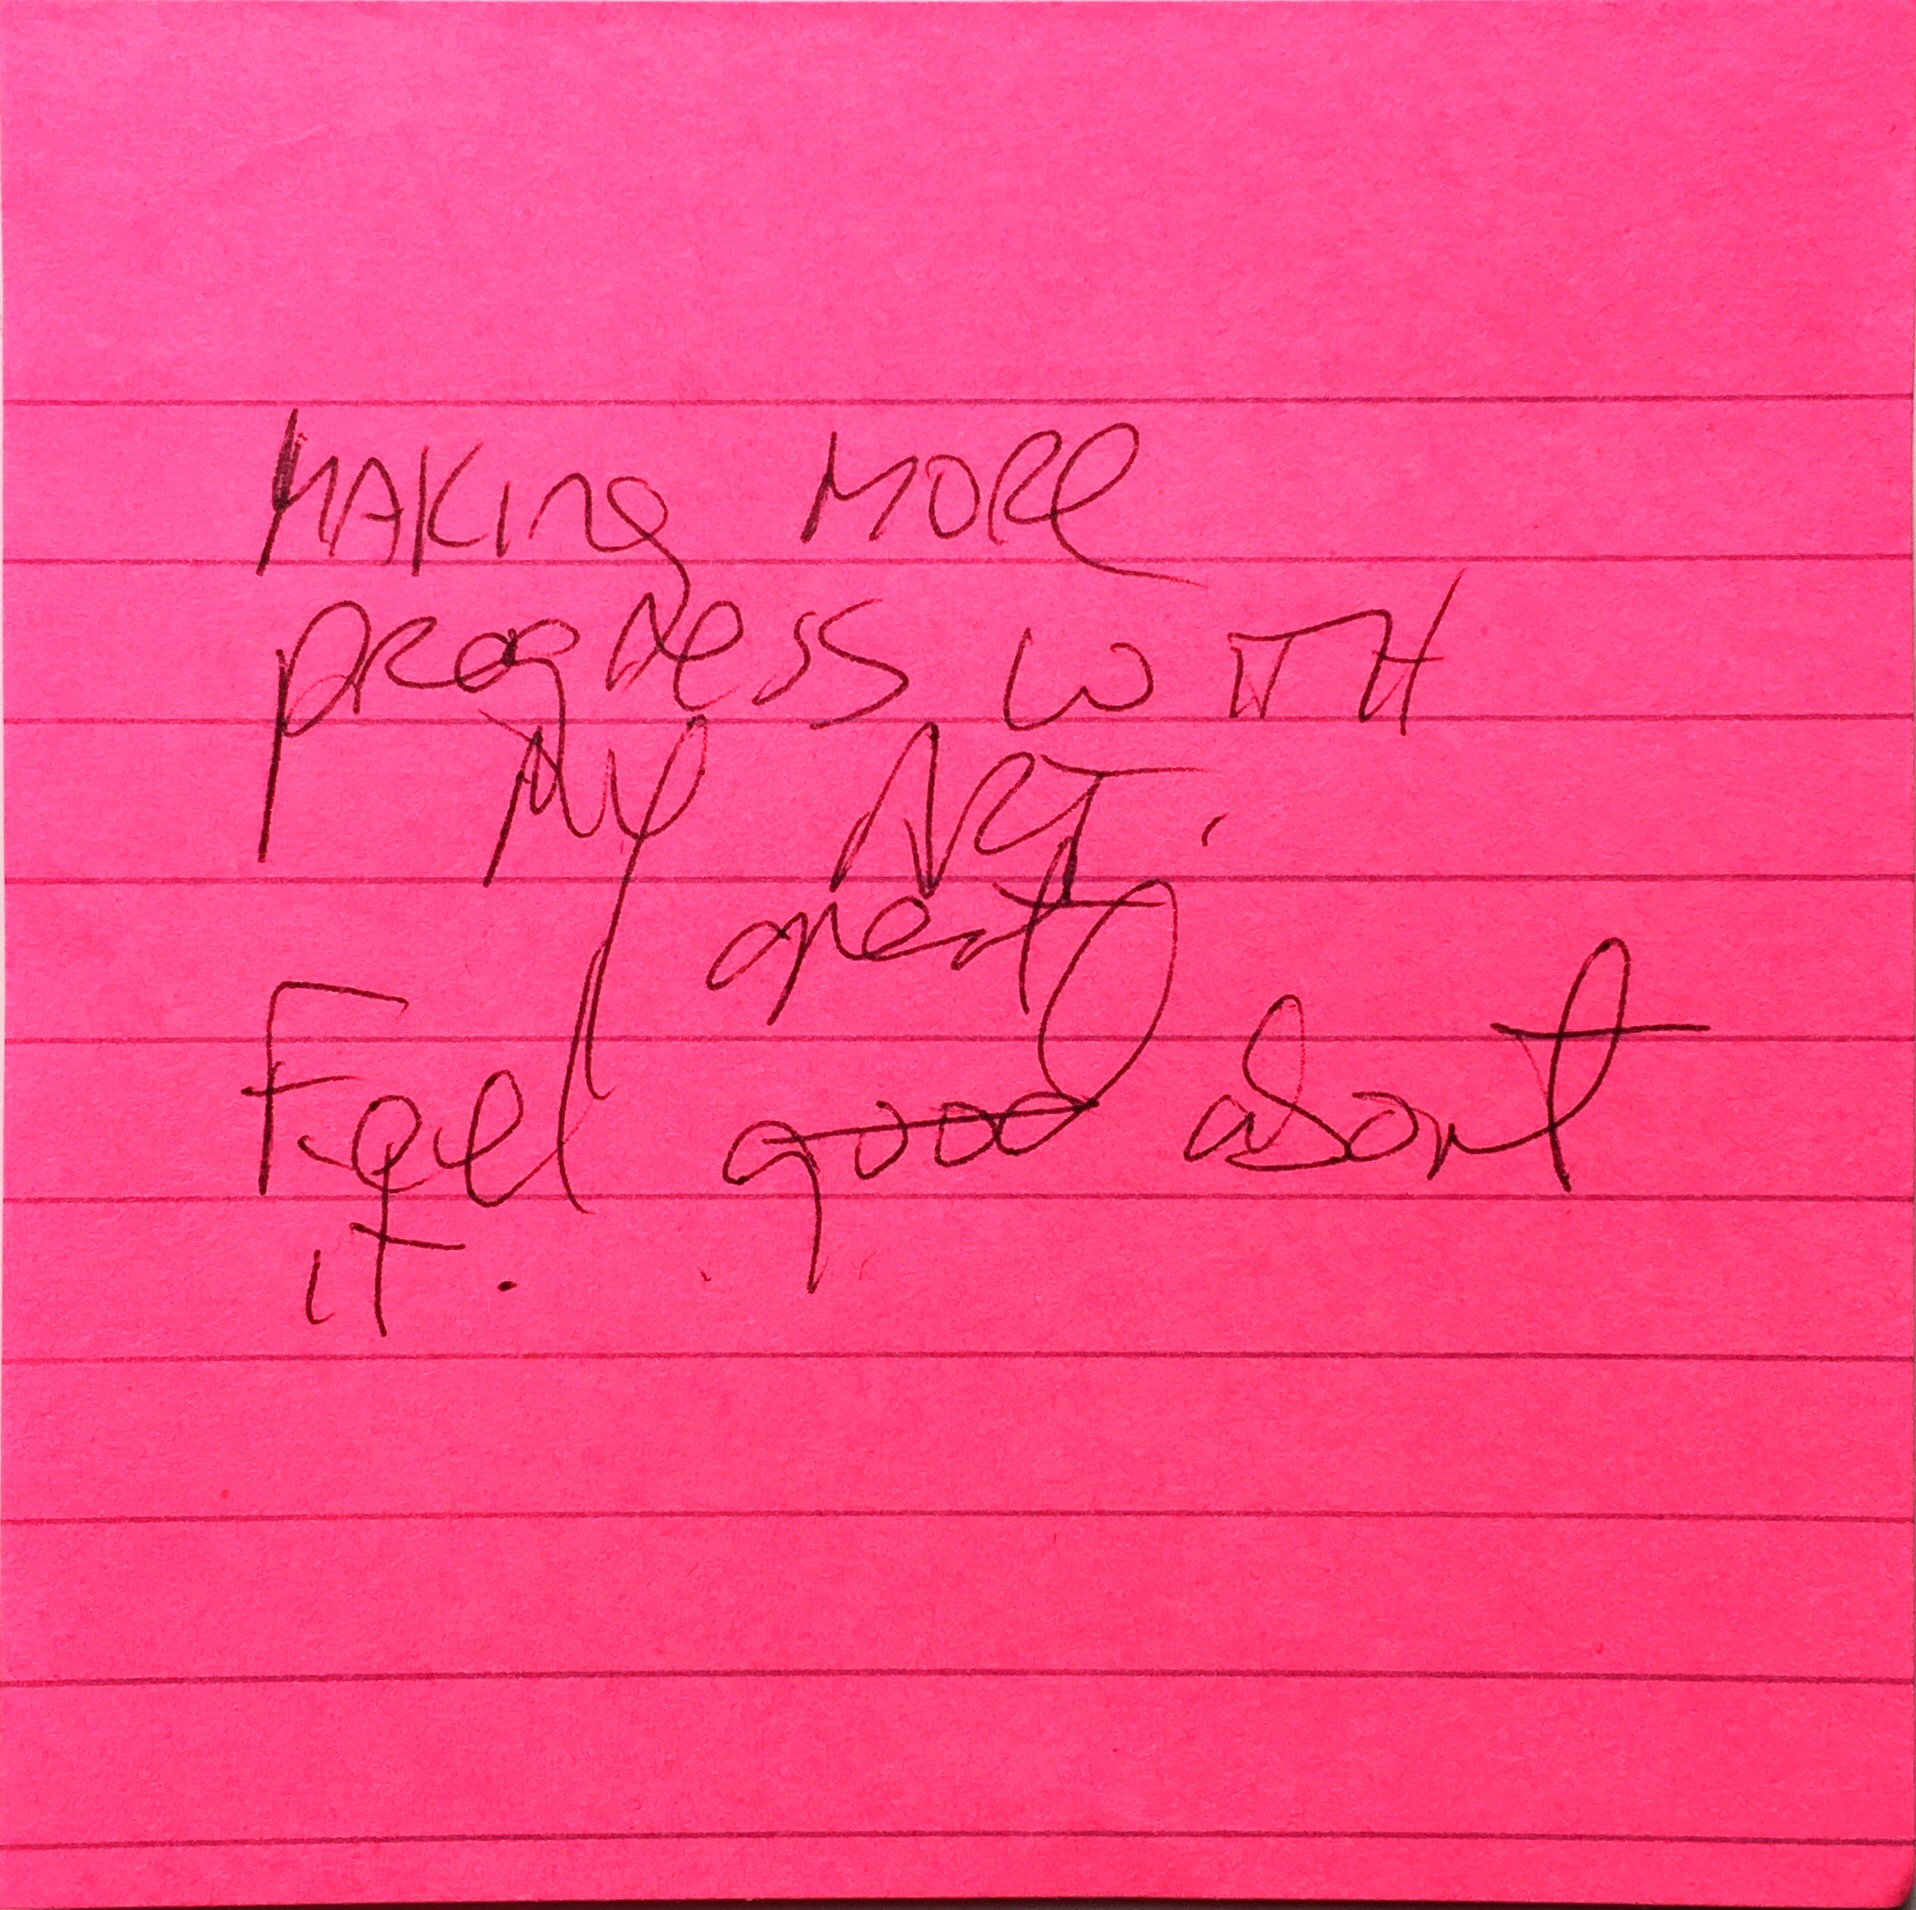 MAKing MORe
progRess wITH
My ART.
great
Feel good about
it.